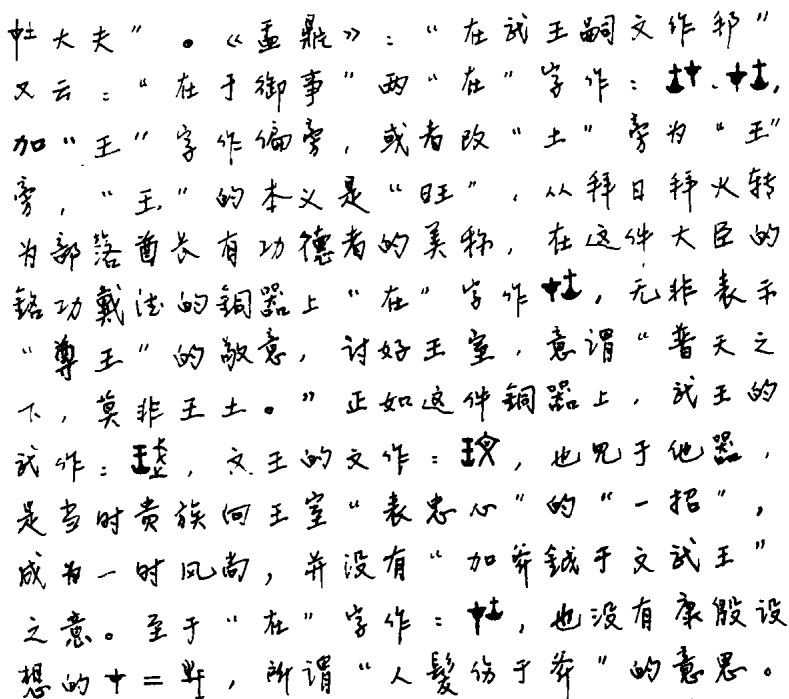 大夫”。《盂鼎》：“在武王嗣文作邦”
又云：“在于御事”两“在”字作：、，
加“王”字作偏旁，或者改“土”旁为“王”
旁，“王”的本义是“旺”，从拜日拜火转
为部落酋长有功德者的美称，在这件大臣的
铭功戴德的铜器上“在”字作，无非表示
“尊王”的敬意，讨好王室，意谓“普天之
下，莫非王土。”正如这件铜器上，武王的
武作：珷，文王的文作：玟，也见于他器，
是当时贵族向王室“表忠心”的“一招”，
成为一时风尚，并没有“加斧钺于文武王”
之意。至于“在”字作：，也没有康殷设
想的=，所谓“人髮伤于斧”的意思。